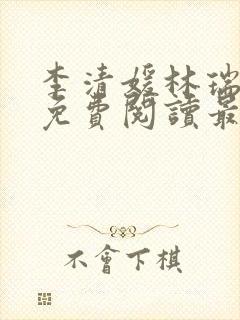 李清媛林瑞
免費閱讀最
不會下棋